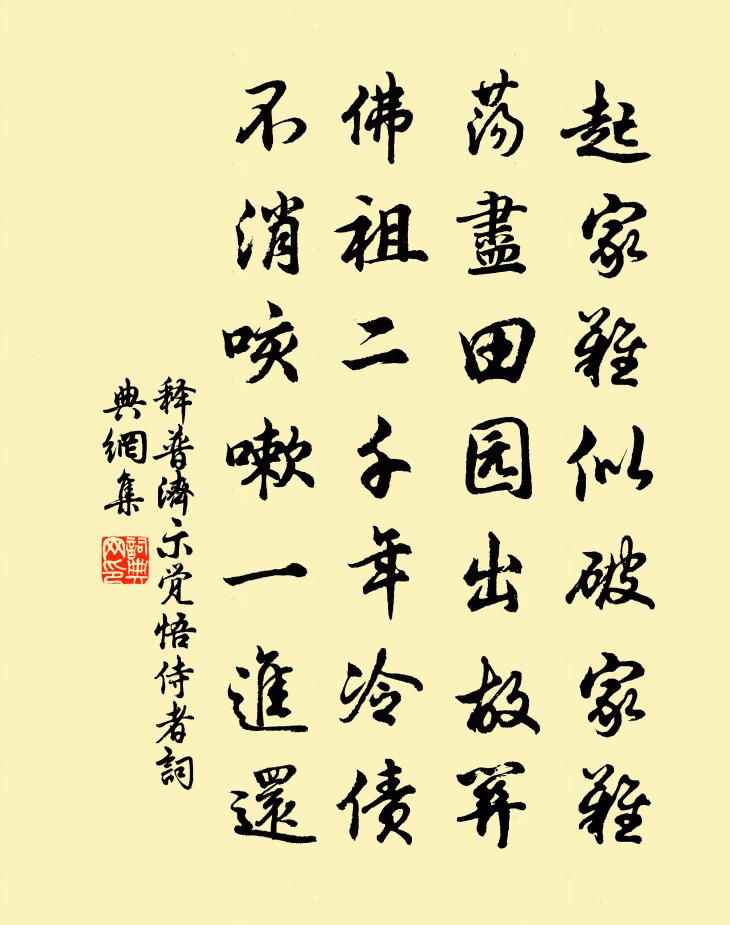 起家難似破家難
蕩盡田园出故關
佛祖二千年冷债
不消咳嗽一進還
释普濟示觉悟侍者詞
典網集
詞典
网印